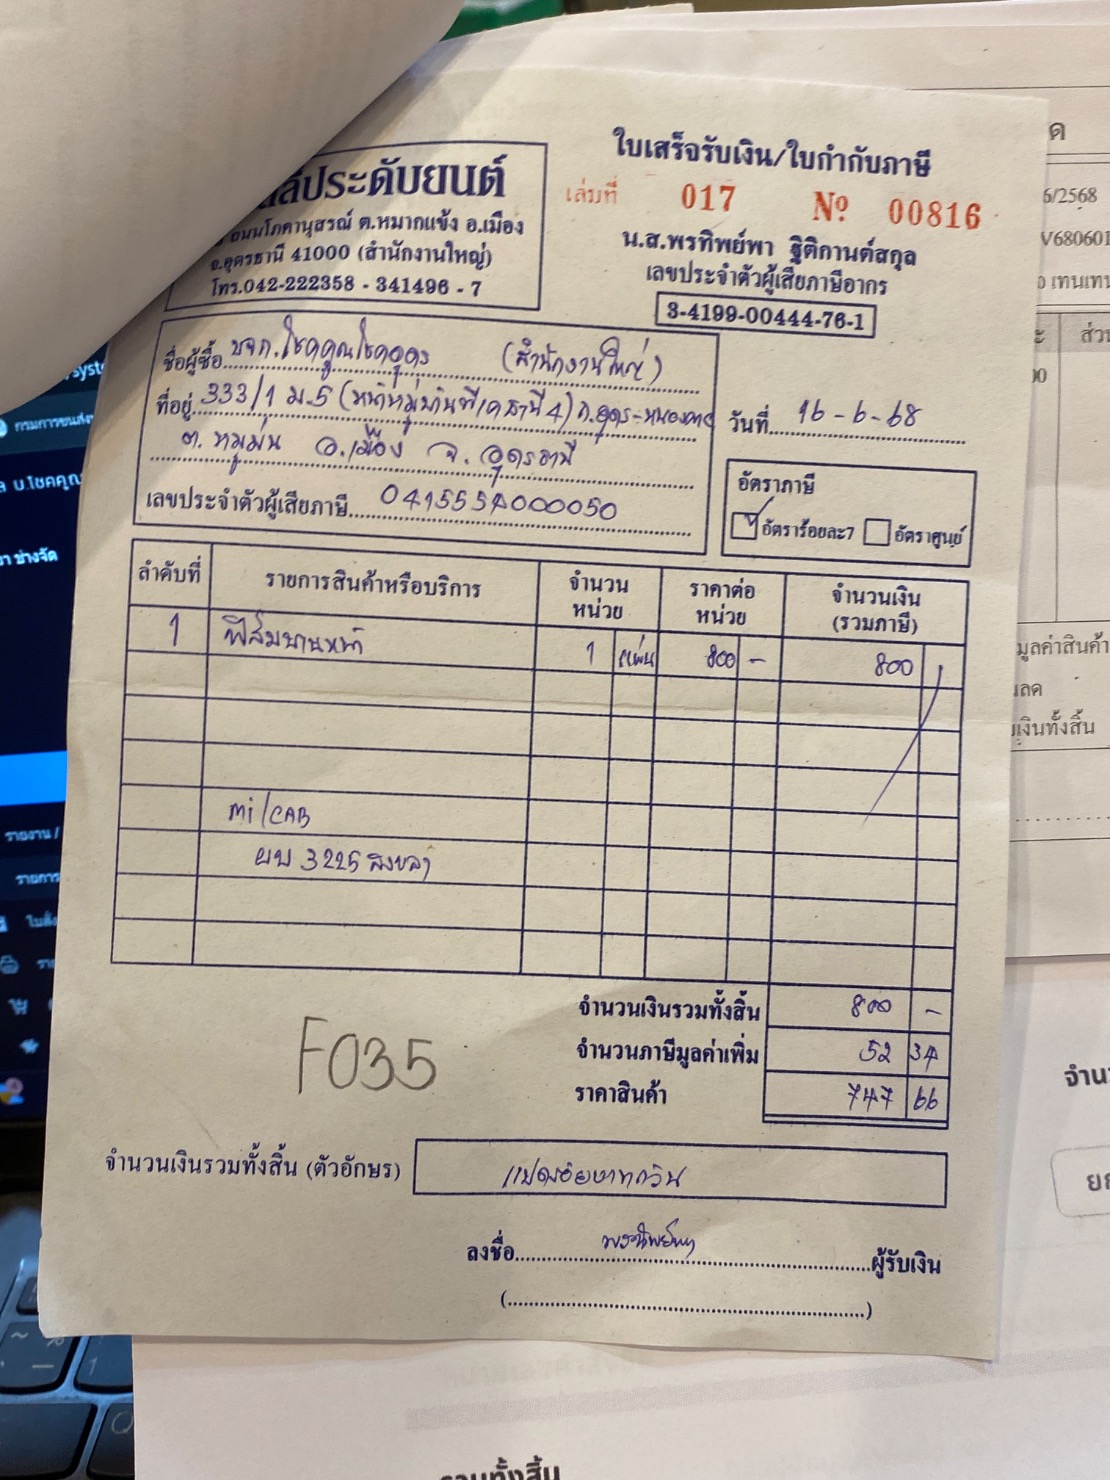 ประดับยนต์
ถนนโภคานุสรณ์ ต.หมากแข้ง อ.เมือง
จ.อุดรธานี 41000 (สำนักงานใหญ่)
โทร.042-222358 - 341496 - 7
ใบเสร็จรับเงิน/ใบกำกับภาษี
เล่มที่ 017 Nº 00816
น.ส.พรทิพย์พา ฐิติกานต์สกุล
เลขประจำตัวผู้เสียภาษีอากร
3-4199-00444-76-1
ชื่อผู้ซื้อ บจก.โชคคูณโชคอุดร (สำนักงานใหญ่)
ที่อยู่ 333/1 ม.5 ถ.อุดร-หนองคาย
ต. หมูม่น อ.เมือง จ. อุดรธานี
วันที่ 16-6-68
เลขประจำตัวผู้เสียภาษี 0415554000050
อัตราภาษี
อัตราร้อยละ7 อัตราศูนย์
ลำดับที่ รายการสินค้าหรือบริการ จำนวนหน่วย ราคาต่อหน่วย จำนวนเงิน (รวมภาษี)
1 ฟิล์มบานหน้า 1 แผ่น 800 - 800
Mi/CAB
ผบ 3225 สงขลา
จำนวนเงินรวมทั้งสิ้น 800 -
จำนวนภาษีมูลค่าเพิ่ม 52 34
ราคาสินค้า 747 66
F035
จำนวนเงินรวมทั้งสิ้น (ตัวอักษร) แปดร้อยบาทถ้วน
ลงชื่อ พรทิพย์พา ผู้รับเงิน
(
)
6/2568
V680601
ส่วน
มูลค่าสินค้า
เงินทั้งสิ้น
จำน
ยก
กรมการขนส่ง
บ.โชคคูณ
ช่างจัด
รายงาน /
รายการ
รวมทั้งสิ้น